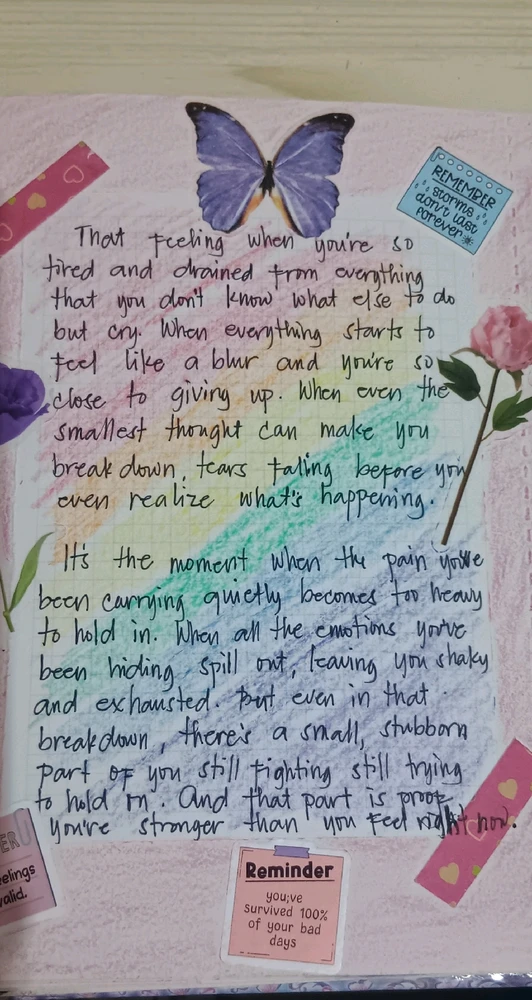 REMEMBER
storms
don't last
forever
That feeling when you're so
tired and drained from everything
that you don't know what else to do
but cry. When everything starts to
feel like a blur and you're so
close to giving up. When even the
smallest thought can make you
break down, tears falling before you
even realize what's happening.
It's the moment when the pain you've
been carrying quietly becomes too heavy
to hold in. When all the emotions you've
been hiding spill out, leaving you shaky
and exhausted. But even in that
breakdown, there's a small, stubborn
part of you still fighting still trying
to hold on. And that part is proof
you're stronger than you feel right now.
ER
eelings
valid.
Reminder
you;ve
survived 100%
of your bad
days